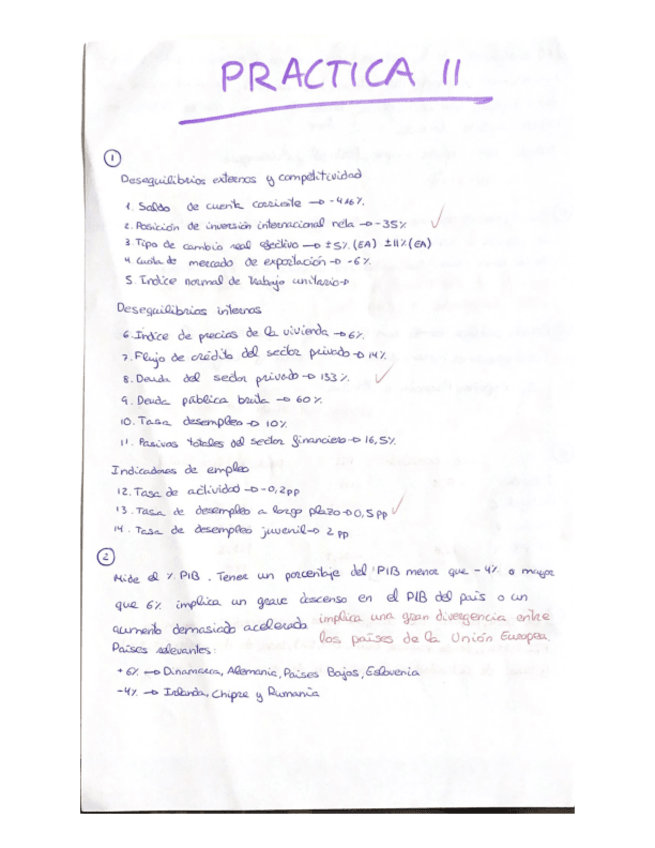 PRACTICA 11
1
Desequilibrios externos y competitividad
1. Saldo de cuenta corriente → -4+6%
2. Posición de inversión internacional neta → -35%
3. Tipo de cambio real efectivo → ±5% (EA) ±11% (EA)
4 Cuota de mercado de exportación → -6%
5. Indice normal de trabajo unitario →
Desequilibrios internos
6. Indice de precios de la vivienda → 6%
7. Flujo de crédito del sector privado → 14%
8. Deuda del sector privado → 133%
9. Deuda pública bruta → 60%
10. Tasa desempleo → 10%
11. Pasivos totales del sector financiero → 16,5%
Indicadores de empleo
12. Tasa de actividad → -0,2pp
13. Tasa de desempleo a largo plazo → 0,5pp
14. Tasa de desempleo juvenil → 2 pp
2
Mide el % PIB. Tener un porcentaje del PIB menor que -4% o mayor
que 6% implica un grave descenso en el PIB del país o un
aumento demasiado acelerado implica una gran divergencia entre
los países de la Unión Europea.
Países relevantes:
+6% → Dinamarca, Alemania, Países Bajos, Eslovenia
-4% → Irlanda, Chipre y Rumania